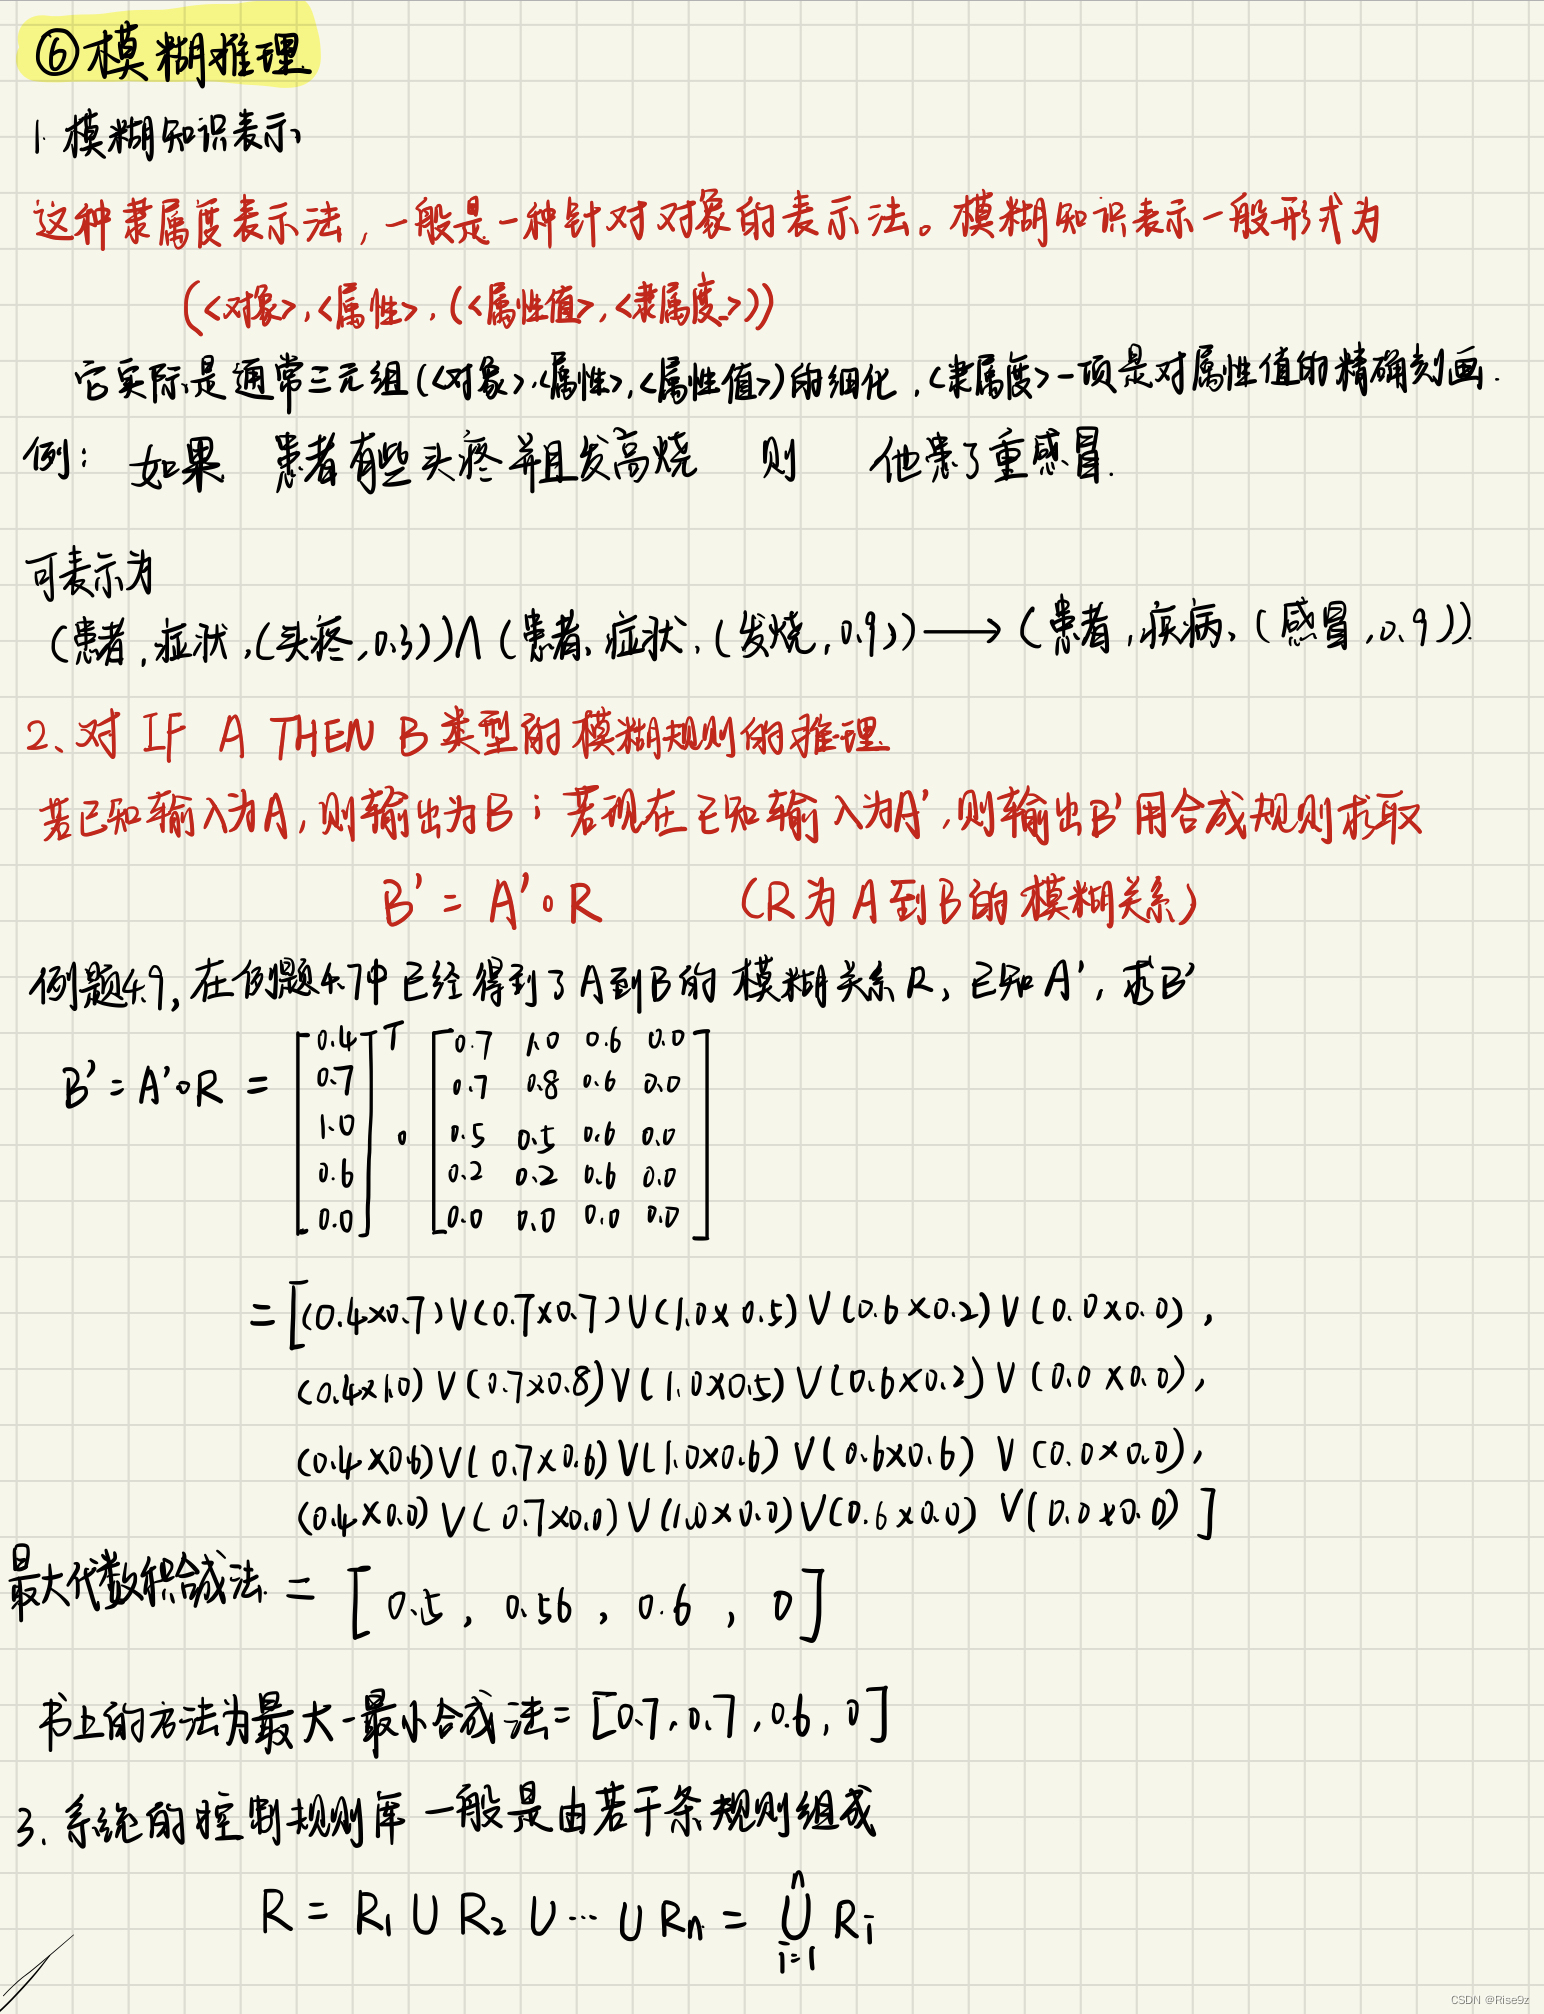 ⑥模糊推理
1. 模糊知识表示
这种隶属度表示法,一般是一种针对对象的表示法。模糊知识表示一般形式为
(<对象>,<属性>,(<属性值>,<隶属度>))
它实际是通常三元组(<对象>,<属性>,<属性值>)的细化,<隶属度>一项是对属性值的精确刻画.
例: 如果 患者有些头疼并且发高烧 则 他患了重感冒.
可表示为
(患者,症状,(头疼,0.3))∧(患者,症状,(发烧,0.9))→(患者,疾病,(感冒,0.9))
2、对 IF A THEN B 类型的模糊规则的推理
若已知输入为A,则输出为B;若现在已知输入为A',则输出B'用合成规则求取
B' = A'∘R (R为A到B的模糊关系)
例题4.9,在例题4.7中已经得到了A到B的模糊关系R,已知A',求B'
B' = A'∘R = [0.4 0.7 1.0 0.6 0.0]T ∘
[0.7 1.0 0.6 0.0
0.7 0.8 0.6 0.0
0.5 0.5 0.6 0.0
0.2 0.2 0.6 0.0
0.0 0.0 0.0 0.0]
= [(0.4×0.7)∨(0.7×0.7)∨(1.0×0.5)∨(0.6×0.2)∨(0.0×0.0),
(0.4×1.0)∨(0.7×0.8)∨(1.0×0.5)∨(0.6×0.2)∨(0.0×0.0),
(0.4×0.6)∨(0.7×0.6)∨(1.0×0.6)∨(0.6×0.6)∨(0.0×0.0),
(0.4×0.0)∨(0.7×0.0)∨(1.0×0.0)∨(0.6×0.0)∨(0.0×0.0)]
最大代数积合成法. = [0.5, 0.56, 0.6, 0]
书上的方法为最大-最小合成法=[0.7,0.7,0.6,0]
3、系统的控制规则库一般是由若干条规则组成
R = R₁∪R₂∪…∪Rn = ⋃ⁿᵢ₌₁ Rᵢ
CSDN @Rise9z